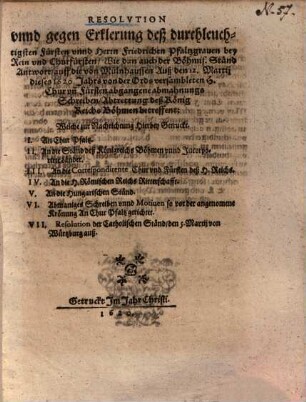 N. 57.
RESOLVTION
vnnd gegen Erklerung deß durchleuch-
tigsten Fürsten vnnd Herrn Friedrichen Pfaltzgraven bey
Rein vnnd Churfürsten/ Wie dan auch der Böhmis. Ständ
Antwort/ auff die von Mülnhaussen Auß den 12. Martij
dieses 1620. Jahrs von der Ords versambleten H.
Chur vñ Fürsten abgangene abmahnungs
Schreiben/ Abtrettung deß König
Reichs Böhmen betreffent:
Welche zur Nachrichtung Hierbey Getruckt.
I. An Chur Pfaltz.
II. An die Ständ deß Königreichs Böhmen vnnd
III. An die Correspondirente Chur vnd Fürsten deß H. Reichs.
IV. An die H. Römischen Reichs Ritterschafft.
V. An die Hungarischen Ständ.
VI. Abermaliges Schreiben vnnd Motiuen so vor der angenomene
Krönung An Chur Pfaltz gerichtet.
VII. Resolution der Catholischen Ständt/ den 3. Martij von
Würtzburg auß.
Getruckt Im Jahr Christi.
1620.